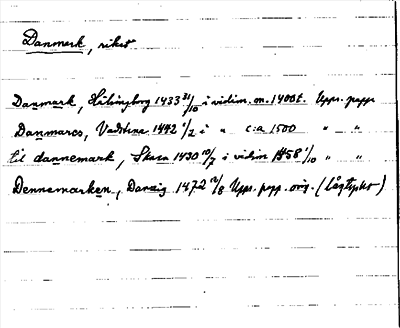 Danmark, riket
Danmark, Hälsingborg 1433 31/10 i vidim. m. 1400t. Upps. papp
Danmarcs, Vadstena 1442 1/2 i " c:a 1500 " "
til dannemark, Skara 1490 10/7 i vidim 1458 1/10 " "
Dennemarken, Danzig 1472 12/8 Upps. papp. orig. (Lågtyska)